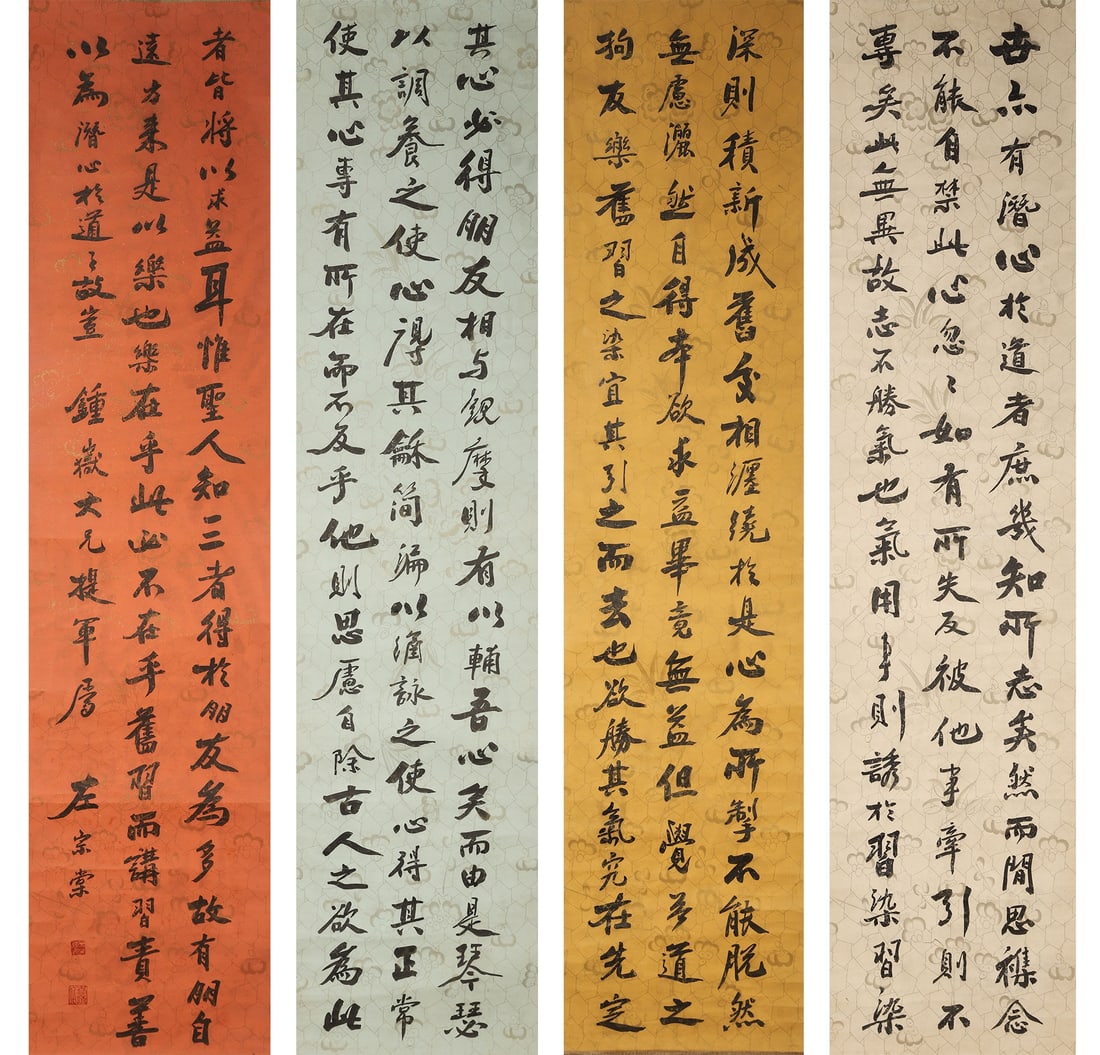 世亦有潛心於道者庶幾知所志矣然而閒思襍念
不能自禁此心忽〻如有所失反被他事牽引則不
專矣此無異故志不勝氣也氣用事則誘於習染習染
深則積新成舊交相纏繞於是心為所掣不能脫然
無慮灑然自得本欲求益畢竟無益但覺為道之
拘友樂舊習之染宜其引之而去也欲勝其氣究在先定
其心必得朋友相与觀摩則有以輔吾心矣而由是琴瑟
以調養之使心得其龢簡編以誦詠之使心得其正常
使其心專有所在而不及乎他則思慮自除古人之欲為此
者皆將以求益耳惟聖人知三者得於朋友為多故有朋自
遠方來是以樂也樂在乎此必不在乎舊習而講習責善
以為潛心於道〻故豈
鍾嶽大兄提軍屬
左宗棠